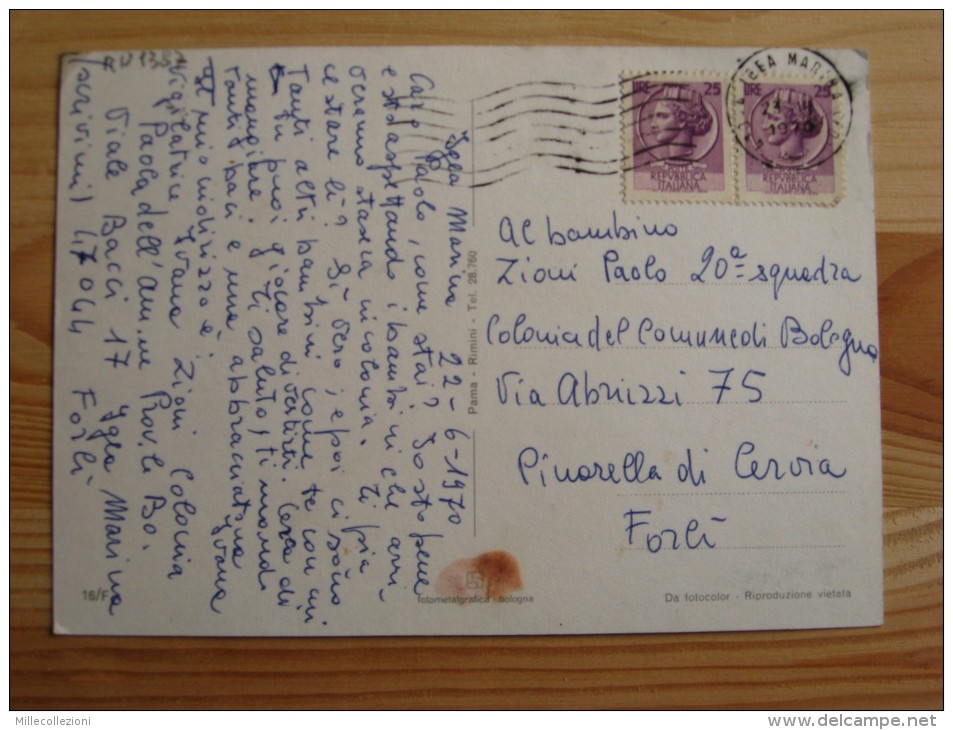 Igea Marina 22-6-1970
Caro Paolo, come stai? Io sto bene
e sto aspettando i bambini che arri-
veranno stasera in colonia. Ti pia
ce stare lì? Sì vero, e poi ci sono
Tanti altri bambini come te con cui
tu puoi giocare e divertirti. Cerca di
mangiare. Ti saluto, ti mando
tanti baci e una abbracciatona
Ivana
Il mio indirizzo è:
Vigilatrice Ivana Zioni Colonia
Paola dell'Amm.ne Prov.le Bo.
Viale Bacci 17 Igea Marina
(scrivimi) 47044 Forlì
RN1357
Pama - Rimini - Tel. 28.760
LIRE 25
POSTE
REPVBBLICA
ITALIANA
LIRE 25
REPVBBLICA
ITALIANA
IGEA MARINA
1970
Al bambino
Zioni Paolo 20ª squadra
Colonia del Comune di Bologna
Via Abruzzi 75
Pinarella di Cervia
Forlì
16/F
fotometalgrafica - bologna
Da fotocolor - Riproduzione vietata
Millecollezioni
www.delcampe.net